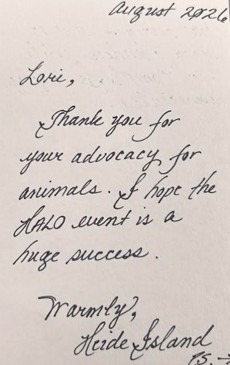 August 2026
Lori,
Thank you for
your advocacy for
animals. I hope the
HALO event is a
huge success.
Warmly,
Heide Island
P.S.